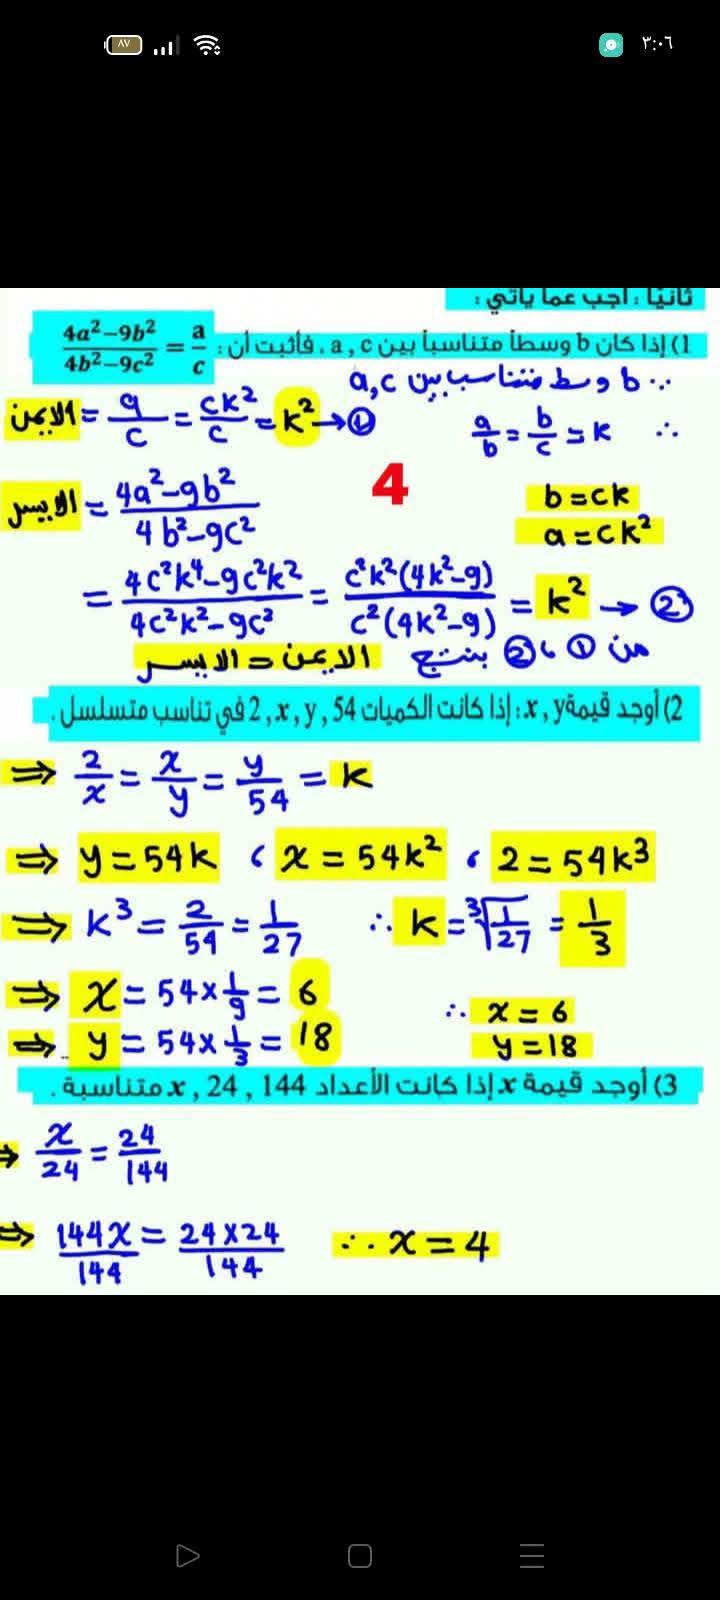 ٨٧ ٣:٠٦
ثانيًا : أجب عما يأتي :
1) إذا كان b وسطاً متناسباً بين a , c ، فأثبت أن : \frac{4a²−9b²}{4b²−9c²} = \frac{a}{c}
∵ b وسط متناسب بين a,c
∴ \frac{a}{b} = \frac{b}{c} = k
الايمن = \frac{a}{c} = \frac{ck²}{c} = k² → ①
4
b = ck
a = ck²
الايسر = \frac{4a²−9b²}{4b²−9c²}
= \frac{4c²k⁴−9c²k²}{4c²k²−9c²} = \frac{c²k²(4k²−9)}{c²(4k²−9)} = k² → ②
من ① ، ② ينتج الايمن = الايسر
2) أوجد قيمة x , y : إذا كانت الكميات 2 , x , y , 54 في تناسب متسلسل .
⇒ \frac{2}{x} = \frac{x}{y} = \frac{y}{54} = k
⇒ y = 54k ، x = 54k² ، 2 = 54k³
⇒ k³ = \frac{2}{54} = \frac{1}{27} ∴ k = ∛\frac{1}{27} = \frac{1}{3}
⇒ x = 54 × \frac{1}{9} = 6 ∴ x = 6
⇒ y = 54 × \frac{1}{3} = 18 y = 18
3) أوجد قيمة x إذا كانت الأعداد x , 24 , 144 متناسبة .
⇒ \frac{x}{24} = \frac{24}{144}
⇒ \frac{144x}{144} = \frac{24×24}{144} ∴ x = 4